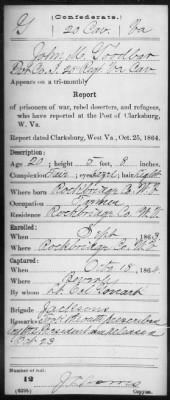 (Confederate.)
G 20 Cav. Va
John M.
Pvt Co. G, 20 Reg. Va Cav
Appears on a tri-monthly
Report
of prisoners of war, rebel deserters, and refugees,
who have reported at the Post of Clarksburg,
W. Va.
Report dated Clarksburg, West Va., Oct. 25, 1864.
Description:
Age 20; height 5 feet, 8 inches.
Complexion Fair; eyes; hair Light
Where born Rockbridge Co.
Occupation Farmer
Residence Rockbridge Co.
Enrolled:
When Sept 1863
Where Rockbridge Co.
Captured:
When Oct 18, 1864.
Where
By whom Lt Col
Brigade, Jacksons
Remarks: Oath prescribed
by President and released
Oct 23
Number of roll:
12
(639b) Copyist.